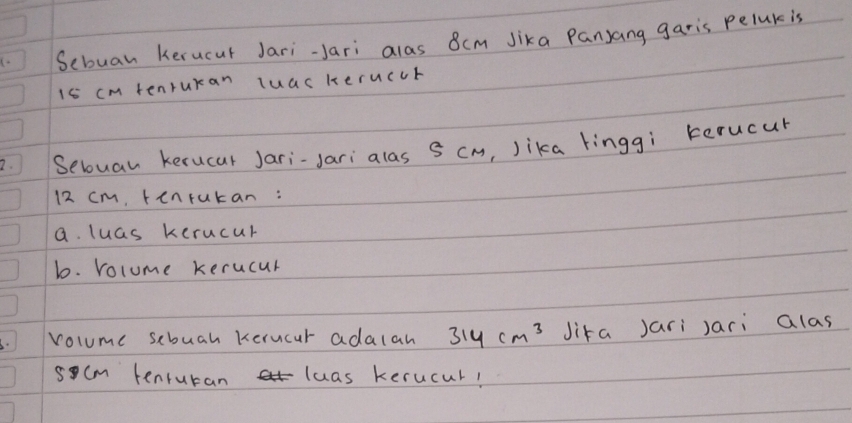 1. Sebuah kerucut Jari-Jari alas 8cm Jika Panjang garis Pelukis
15 cm tentukan luas kerucut
2. Sebuah kerucut Jari-Jari alas 5 cm, Jika tinggi kerucut
12 cm, tentukan :
a. luas kerucut
b. Volume kerucut
3. Volume sebuah kerucut adalah 314 cm³ Jika Jari Jari alas
5 cm tentukan luas kerucut!